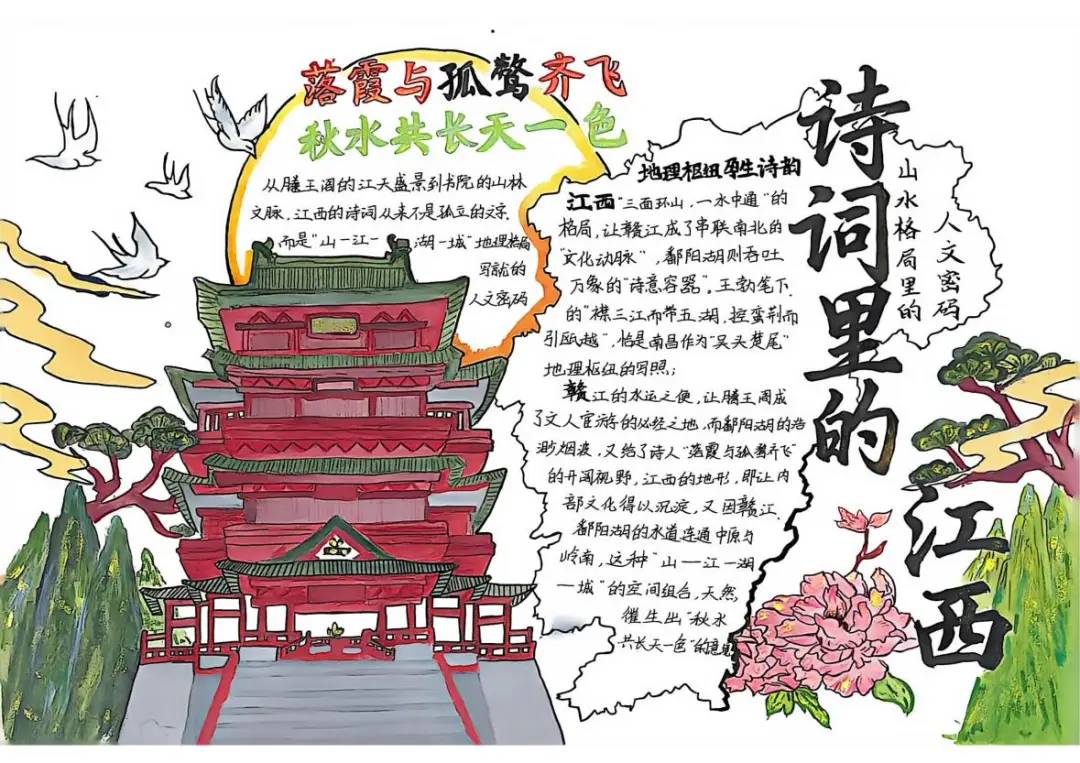 落霞与孤鹜齐飞
秋水共长天一色
从滕王阁的江天盛景到书院的山林
文脉，江西的诗词从来不是孤立的文字，
而是"山一江一湖一城"地理格局
写就的
人文密码
诗词里的江西
山水格局里的
人文密码
地理枢纽孕生诗韵
江西"三面环山，一水中通"的
格局，让赣江成了串联南北的
"文化动脉"，鄱阳湖则吞吐
万象的"诗意容器"。王勃笔下
的"襟三江而带五湖，控蛮荆而
引瓯越"，恰是南昌作为"吴头楚尾"
地理枢纽的写照；
赣江的水运之便，让滕王阁成
了文人宦游的必经之地，而鄱阳湖的浩
渺烟波，又给了诗人"落霞与孤鹜齐飞"
的开阔视野，江西的地形，即让内
部文化得以沉淀，又因赣江、
鄱阳湖的水道连通中原与
岭南，这种"山一江一湖
一城"的空间组合，天然
催生出"秋水
共长天一色"的意境